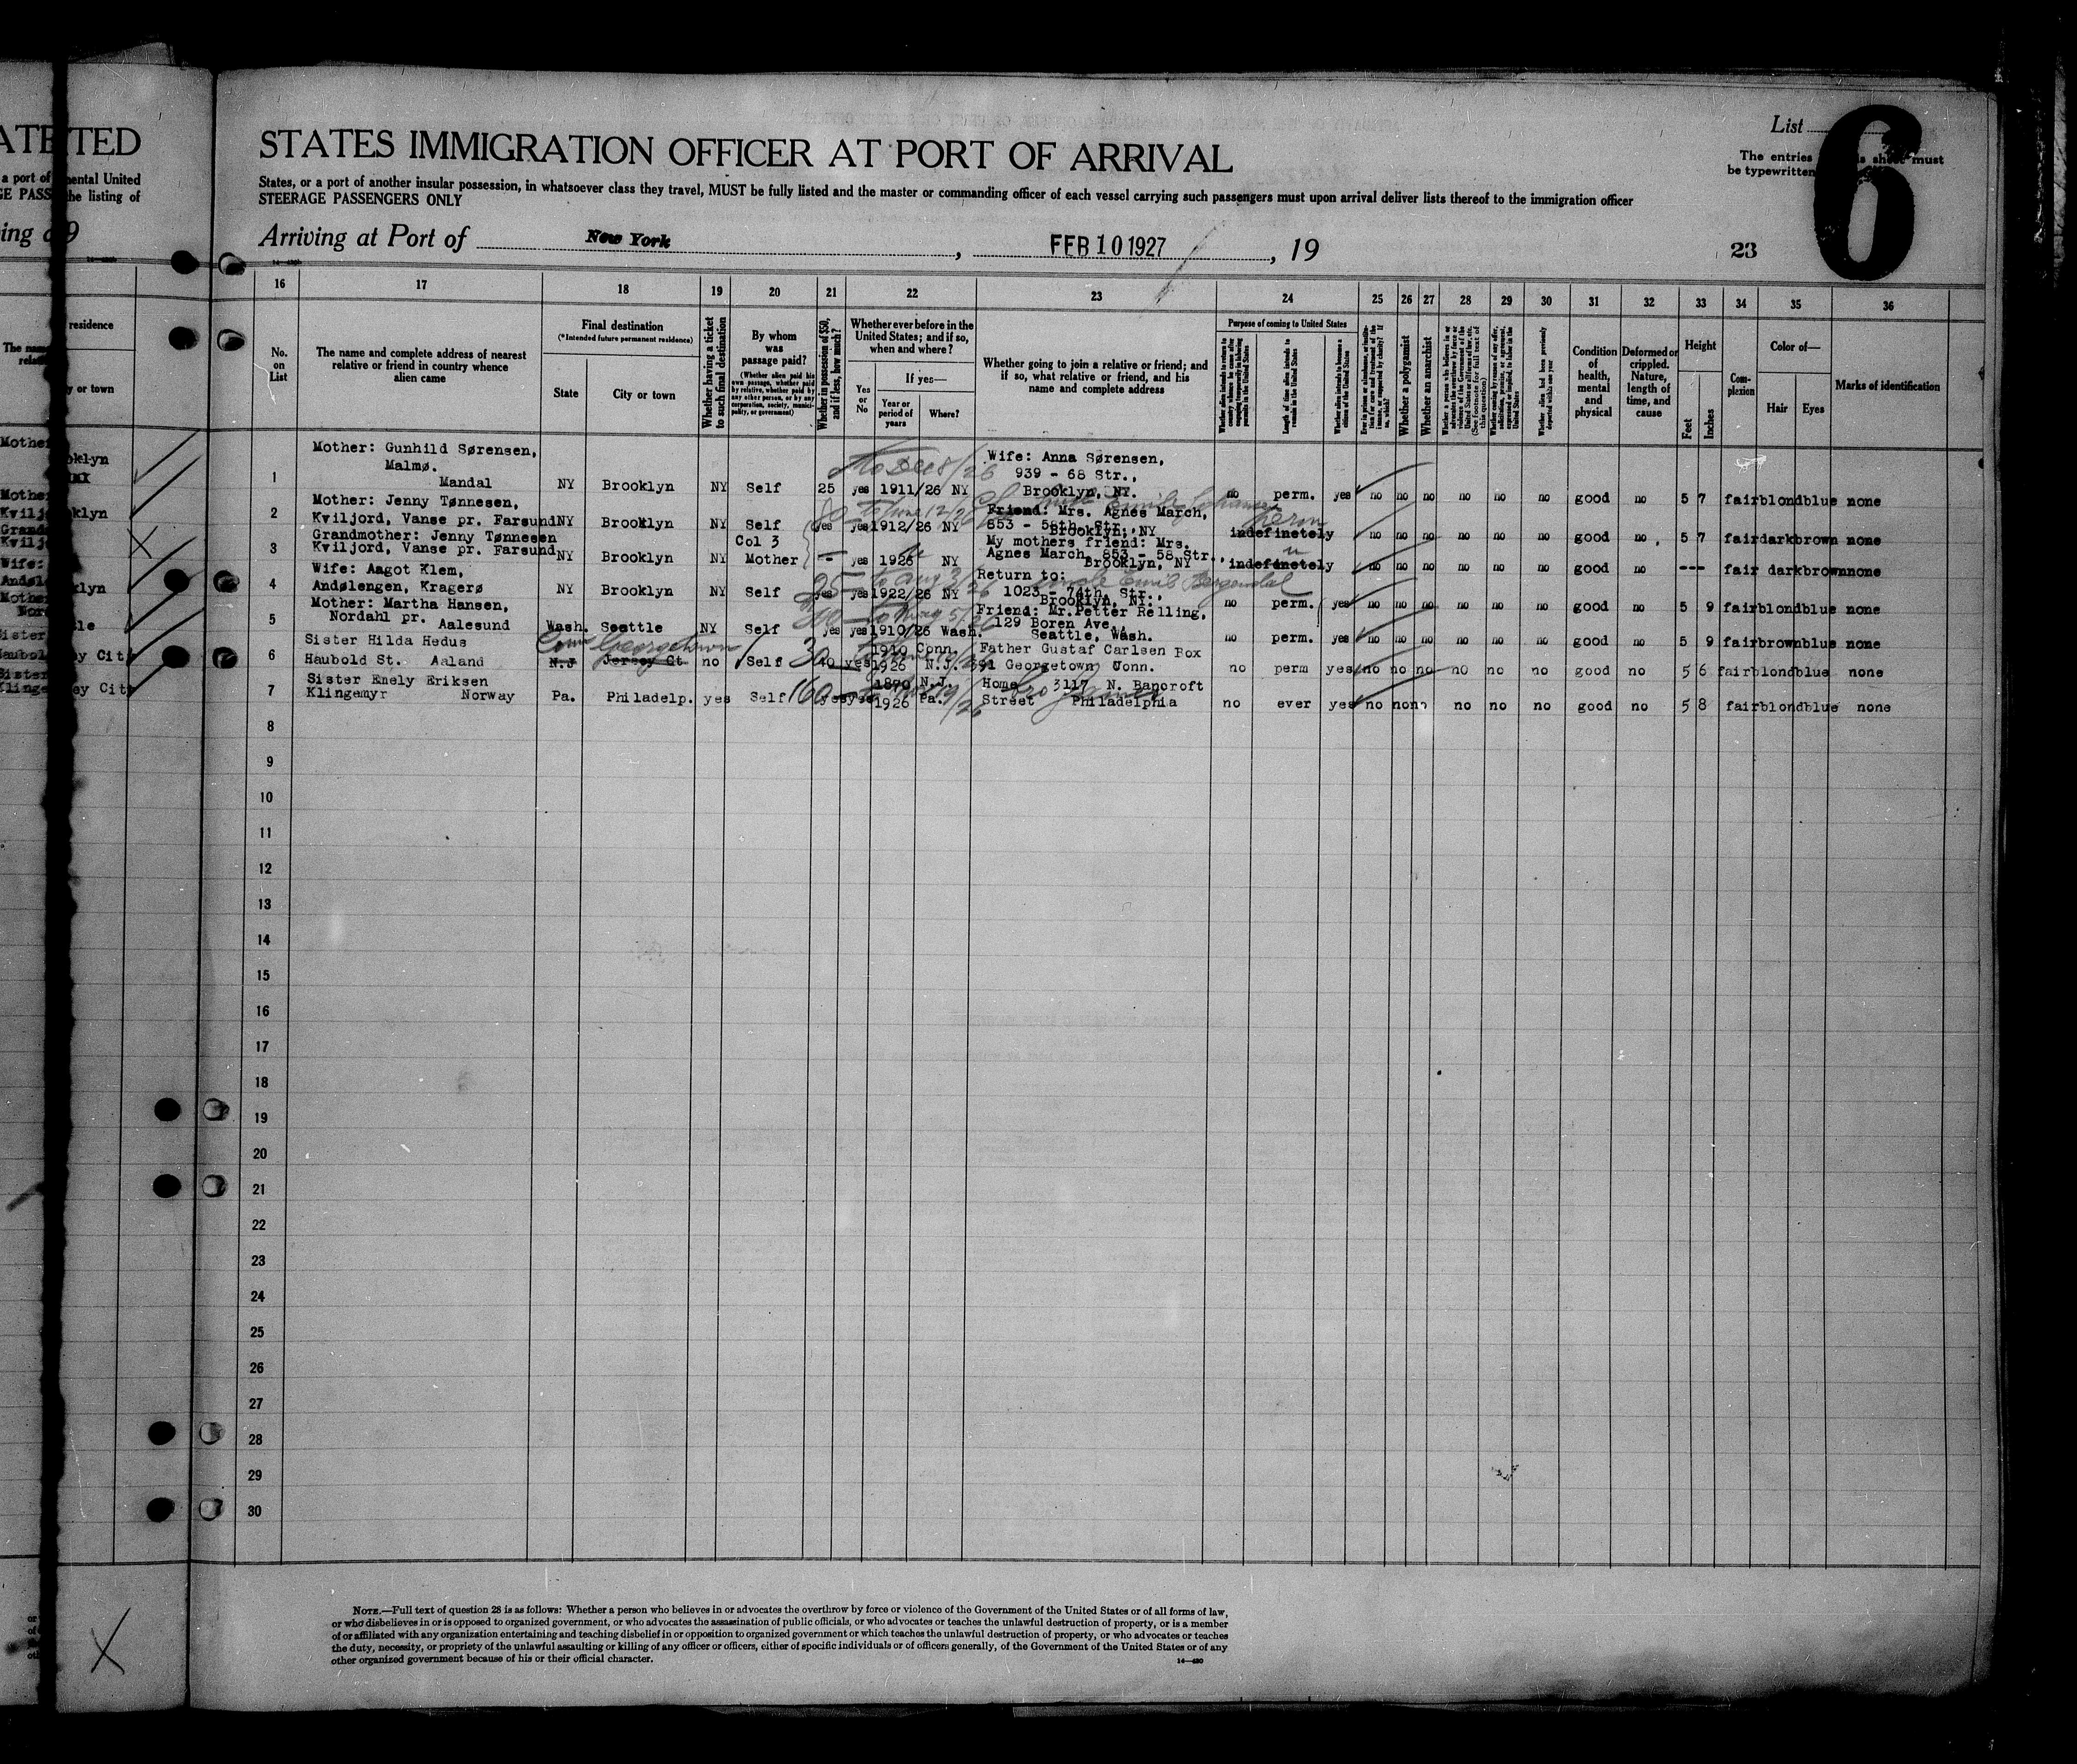 ATE
TED
a port of
mental United
GE PASS
the listing of
ing a
9
residence
y or town
STATES IMMIGRATION OFFICER AT PORT OF ARRIVAL
List
6
The entries
sheet must
be typewritten
States, or a port of another insular possession, in whatsoever class they travel, MUST be fully listed and the master or commanding officer of each vessel carrying such passengers must upon arrival deliver lists thereof to the immigration officer
STEERAGE PASSENGERS ONLY
Arriving at Port of New York, FEB 10 1927, 19
23
16 17 18 19 20 21 22 23 24 25 26 27 28 29 30 31 32 33 34 35 36
No. on List
The name and complete address of nearest relative or friend in country whence alien came
Final destination
(*Intended future permanent residence)
State
City or town
Whether having a ticket to such final destination
By whom was passage paid?
(Whether alien paid his own passage, whether paid by relative, whether paid by any other person, or by any corporation, society, municipality, or government)
Whether in possession of $50, and if less, how much?
Whether ever before in the United States; and if so, when and where?
Yes or No
If yes—
Year or period of years
Where?
Whether going to join a relative or friend; and if so, what relative or friend, and his name and complete address
Purpose of coming to United States
Length of time alien intends to remain in the United States
Whether alien intends to become a citizen of the United States
Whether a polygamist
Whether an anarchist
Condition of health, mental and physical
Deformed or crippled. Nature, length of time, and cause
Height
Feet
Inches
Complexion
Color of—
Hair
Eyes
Marks of identification
1 Mother: Gunhild Sørensen, Malmø. Mandal NY Brooklyn NY Self 25 yes 1911/26 NY Wife: Anna Sørensen, 939 - 68 Str., Brooklyn, NY. no perm. yes no no no no no no good no 5 7 fair blond blue none
to Dec 8/26
2 Mother: Jenny Tønnesen, Kviljord, Vanse pr. Farsund NY Brooklyn NY Self yes yes 1912/26 NY Friend: Mrs. Agnes March, 853 - 58th. Str., Brooklyn, NY indefinetely no no no no no no good no 5 7 fair dark brown none
to June 12/26
perm
3 Grandmother: Jenny Tønnesen Kviljord, Vanse pr. Farsund NY Brooklyn NY Col 3 Mother - yes 1926 NY My mothers friend: Mrs. Agnes March, 853 - 58 Str., Brooklyn, NY indefinetely no no no no no no good no --- fair dark brown none
4 Wife: Aagot Klem, Andølengen, Kragerø NY Brooklyn NY Self yes yes 1922/26 NY Return to: 1023 - 74th. Str., Brooklyn, NY. no perm. yes no no no no no no good no 5 9 fair blond blue none
25 to Aug 3/26 Uncle Emil Bergendal
5 Mother: Martha Hansen, Nordahl pr. Aalesund Wash. Seattle NY Self yes yes 1910/26 Wash. Friend: Mr. Petter Relling, 129 Boren Ave., Seattle, Wash. no perm. yes no no no no no no good no 5 9 fair brown blue none
6 Sister Hilda Hedus Haubold St. Aaland N.J Jersey Ct no Self 40 yes 1910 Conn. 1926 N.J. Father Gustaf Carlsen Box 91 Georgetown Conn. no perm yes no no no no no no good no 5 6 fair blond blue none
Conn Georgetown
30
7 Sister Emely Eriksen Klingemyr Norway Pa. Philadelp. yes Self yes yes 1879 N.J. 1926 Pa. Home 3117 N. Bancroft Street Philadelphia no ever yes no no no no no no good no 5 8 fair blond blue none
160
8
9
10
11
12
13
14
15
16
17
18
19
20
21
22
23
24
25
26
27
28
29
30
NOTE.—Full text of question 28 is as follows: Whether a person who believes in or advocates the overthrow by force or violence of the Government of the United States or of all forms of law,
or who disbelieves in or is opposed to organized government, or who advocates the assassination of public officials, or who advocates or teaches the unlawful destruction of property, or is a member
of or affiliated with any organization entertaining and teaching disbelief in or opposition to organized government or which teaches the unlawful destruction of property, or who advocates or teaches
the duty, necessity, or propriety of the unlawful assaulting or killing of any officer or officers, either of specific individuals or of officers generally, of the Government of the United States or of any
other organized government because of his or their official character.
14—480